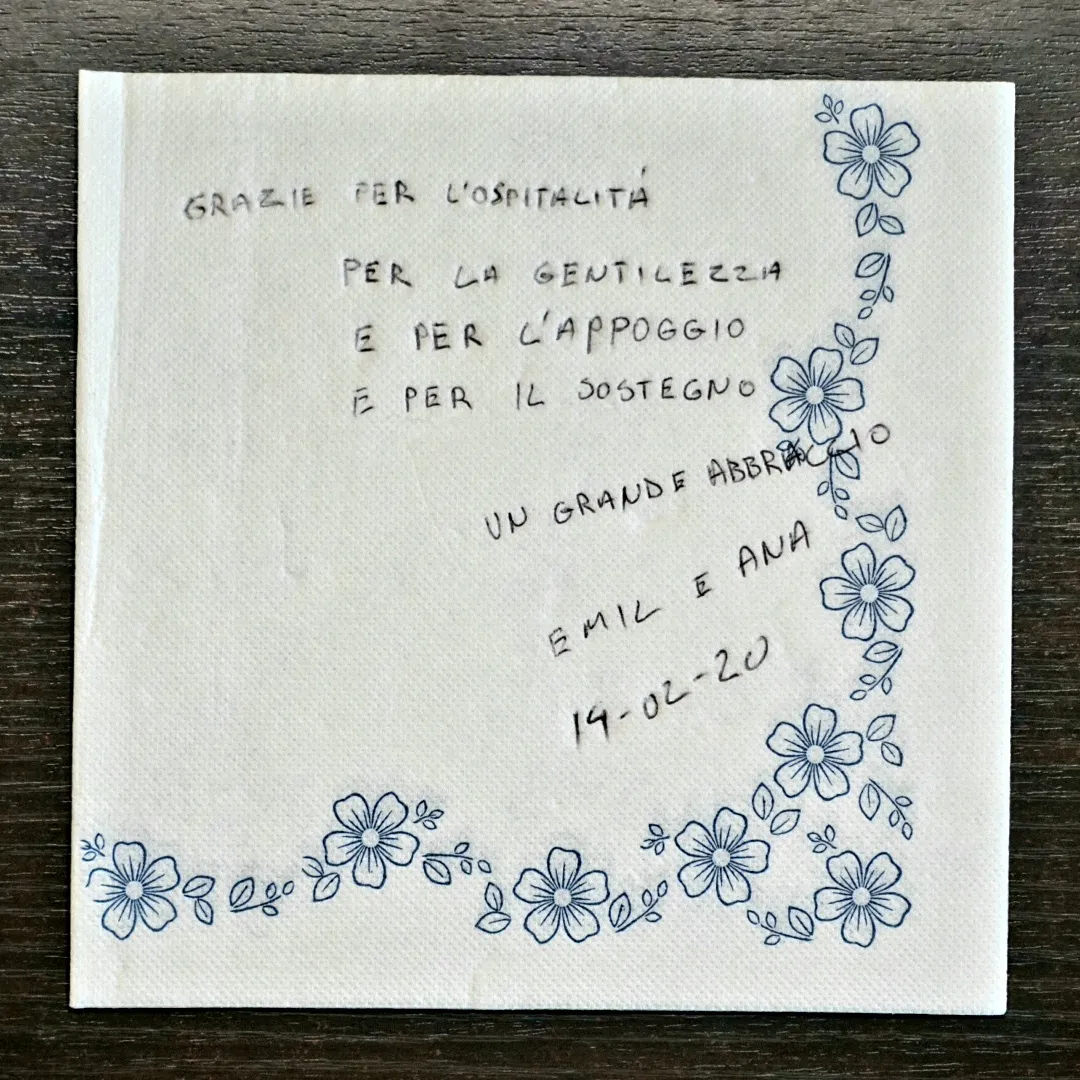 GRAZIE PER L'OSPITALITÁ
PER LA GENTILEZZA
E PER L'APPOGGIO
E PER IL SOSTEGNO
UN GRANDE ABBRACCIO
EMIL E ANA
14-02-20